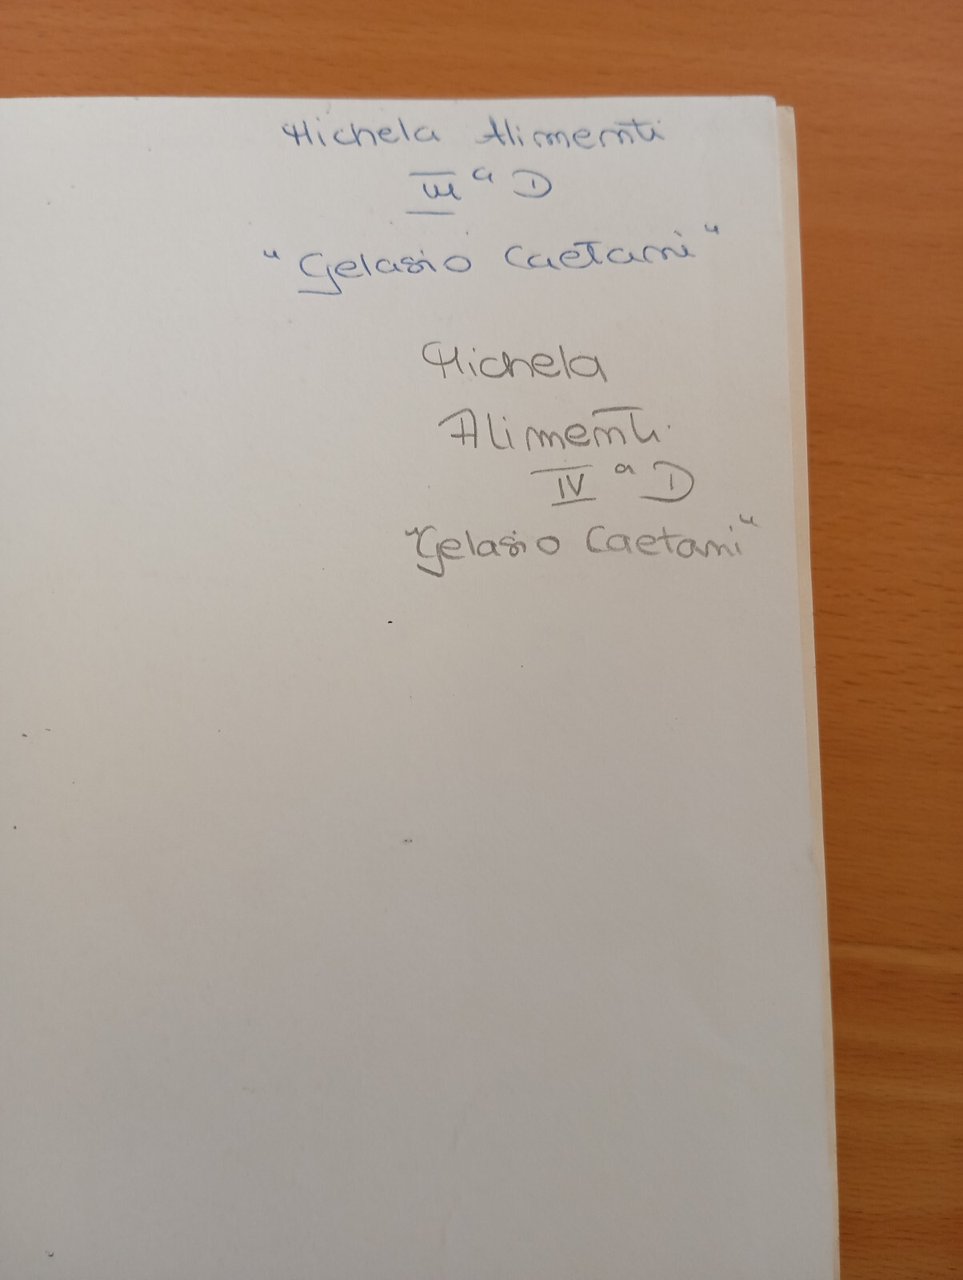 Michela Alimenti
III a D
"Gelasio Caetani"
Michela
Alimenti
IV a D
"Gelasio Caetani"